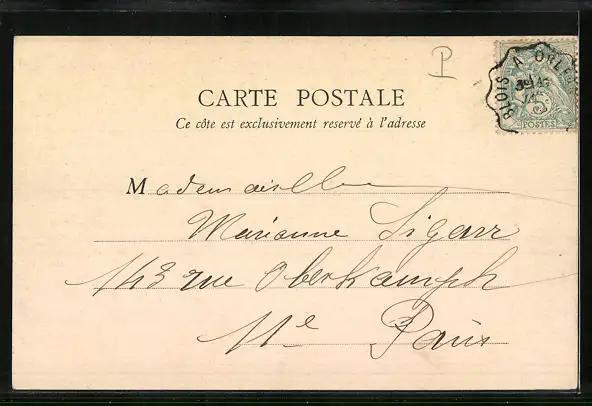 P
BLOIS A ORLE
5c
POSTES
CARTE POSTALE
Ce côte est exclusivement reservé à l'adresse
Mademoiselle
Marianne Sigarr
143 rue Oberkampf
11e Paris